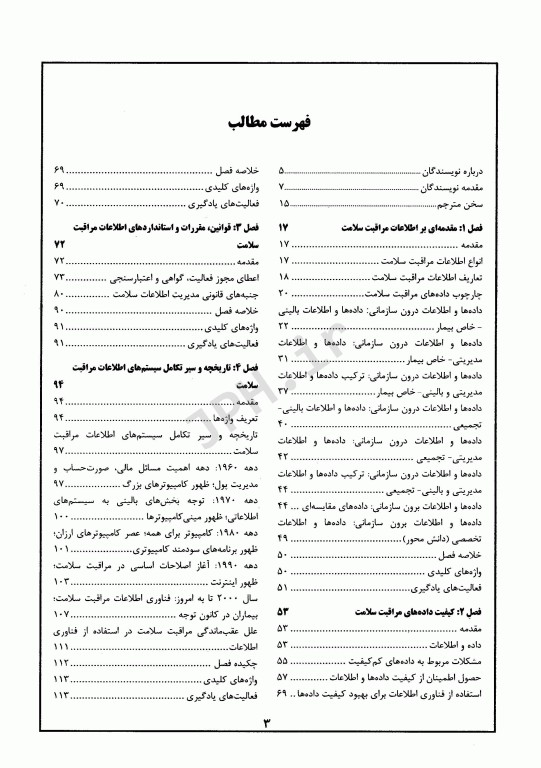 فهرست مطالب
درباره نویسندگان ..... ۵
مقدمه نویسندگان ..... ۷
سخن مترجم ..... ۱۵
فصل ۱: مقدمه‌ای بر اطلاعات مراقبت سلامت ۱۷
مقدمه ..... ۱۷
انواع اطلاعات مراقبت سلامت ..... ۱۷
تعاریف اطلاعات مراقبت سلامت ..... ۱۸
چارچوب داده‌های مراقبت سلامت ..... ۲۰
داده‌ها و اطلاعات درون سازمانی: داده‌ها و اطلاعات بالینی
- خاص بیمار ..... ۲۲
داده‌ها و اطلاعات درون سازمانی: داده‌ها و اطلاعات
مدیریتی- خاص بیمار ..... ۳۱
داده‌ها و اطلاعات درون سازمانی: ترکیب داده‌ها و اطلاعات
مدیریتی و بالینی- خاص بیمار ..... ۳۷
داده‌ها و اطلاعات درون سازمانی: داده‌ها و اطلاعات بالینی-
تجمیعی ..... ۴۰
داده‌ها و اطلاعات درون سازمانی: داده‌ها و اطلاعات
مدیریتی- تجمیعی ..... ۴۲
داده‌ها و اطلاعات درون سازمانی: ترکیب داده‌ها و اطلاعات
مدیریتی و بالینی- تجمیعی ..... ۴۴
داده‌ها و اطلاعات برون سازمانی: داده‌های مقایسه‌ای ... ۴۴
داده‌ها و اطلاعات برون سازمانی: داده‌ها و اطلاعات
تخصصی (دانش محور) ..... ۴۹
خلاصه فصل ..... ۵۰
واژه‌های کلیدی ..... ۵۰
فعالیت‌های یادگیری ..... ۵۱
فصل ۲: کیفیت داده‌های مراقبت سلامت ۵۳
مقدمه ..... ۵۳
داده و اطلاعات ..... ۵۳
مشکلات مربوط به داده‌های کم‌کیفیت ..... ۵۵
حصول اطمینان از کیفیت داده‌ها و اطلاعات ..... ۵۷
استفاده از فناوری اطلاعات برای بهبود کیفیت داده‌ها .. ۶۹
خلاصه فصل ..... ۶۹
واژه‌های کلیدی ..... ۶۹
فعالیت‌های یادگیری ..... ۷۰
فصل ۳: قوانین، مقررات و استانداردهای اطلاعات مراقبت
سلامت ۷۲
مقدمه ..... ۷۲
اعطای مجوز فعالیت، گواهی و اعتبارسنجی ..... ۷۳
جنبه‌های قانونی مدیریت اطلاعات سلامت ..... ۸۰
خلاصه فصل ..... ۹۰
واژه‌های کلیدی ..... ۹۱
فعالیت‌های یادگیری ..... ۹۱
فصل ۴: تاریخچه و سیر تکامل سیستم‌های اطلاعات مراقبت
سلامت ۹۴
مقدمه ..... ۹۴
تعریف واژه‌ها ..... ۹۴
تاریخچه و سیر تکامل سیستم‌های اطلاعات مراقبت
سلامت ..... ۹۷
دهه ۱۹۶۰: دهه اهمیت مسائل مالی، صورت‌حساب و
مدیریت پول؛ ظهور کامپیوترهای بزرگ ..... ۹۷
دهه ۱۹۷۰: توجه بخش‌های بالینی به سیستم‌های
اطلاعاتی؛ ظهور مینی‌کامپیوترها ..... ۱۰۰
دهه ۱۹۸۰: کامپیوتر برای همه؛ عصر کامپیوترهای ارزان؛
ظهور برنامه‌های سودمند کامپیوتری ..... ۱۰۱
دهه ۱۹۹۰: آغاز اصلاحات اساسی در مراقبت سلامت؛
ظهور اینترنت ..... ۱۰۳
سال ۲۰۰۰ تا به امروز: فناوری اطلاعات مراقبت سلامت؛
بیماران در کانون توجه ..... ۱۰۷
علل عقب‌ماندگی مراقبت سلامت در استفاده از فناوری
اطلاعات ..... ۱۱۱
چکیده فصل ..... ۱۱۲
واژه‌های کلیدی ..... ۱۱۳
فعالیت‌های یادگیری ..... ۱۱۳
۳
JPH.ir